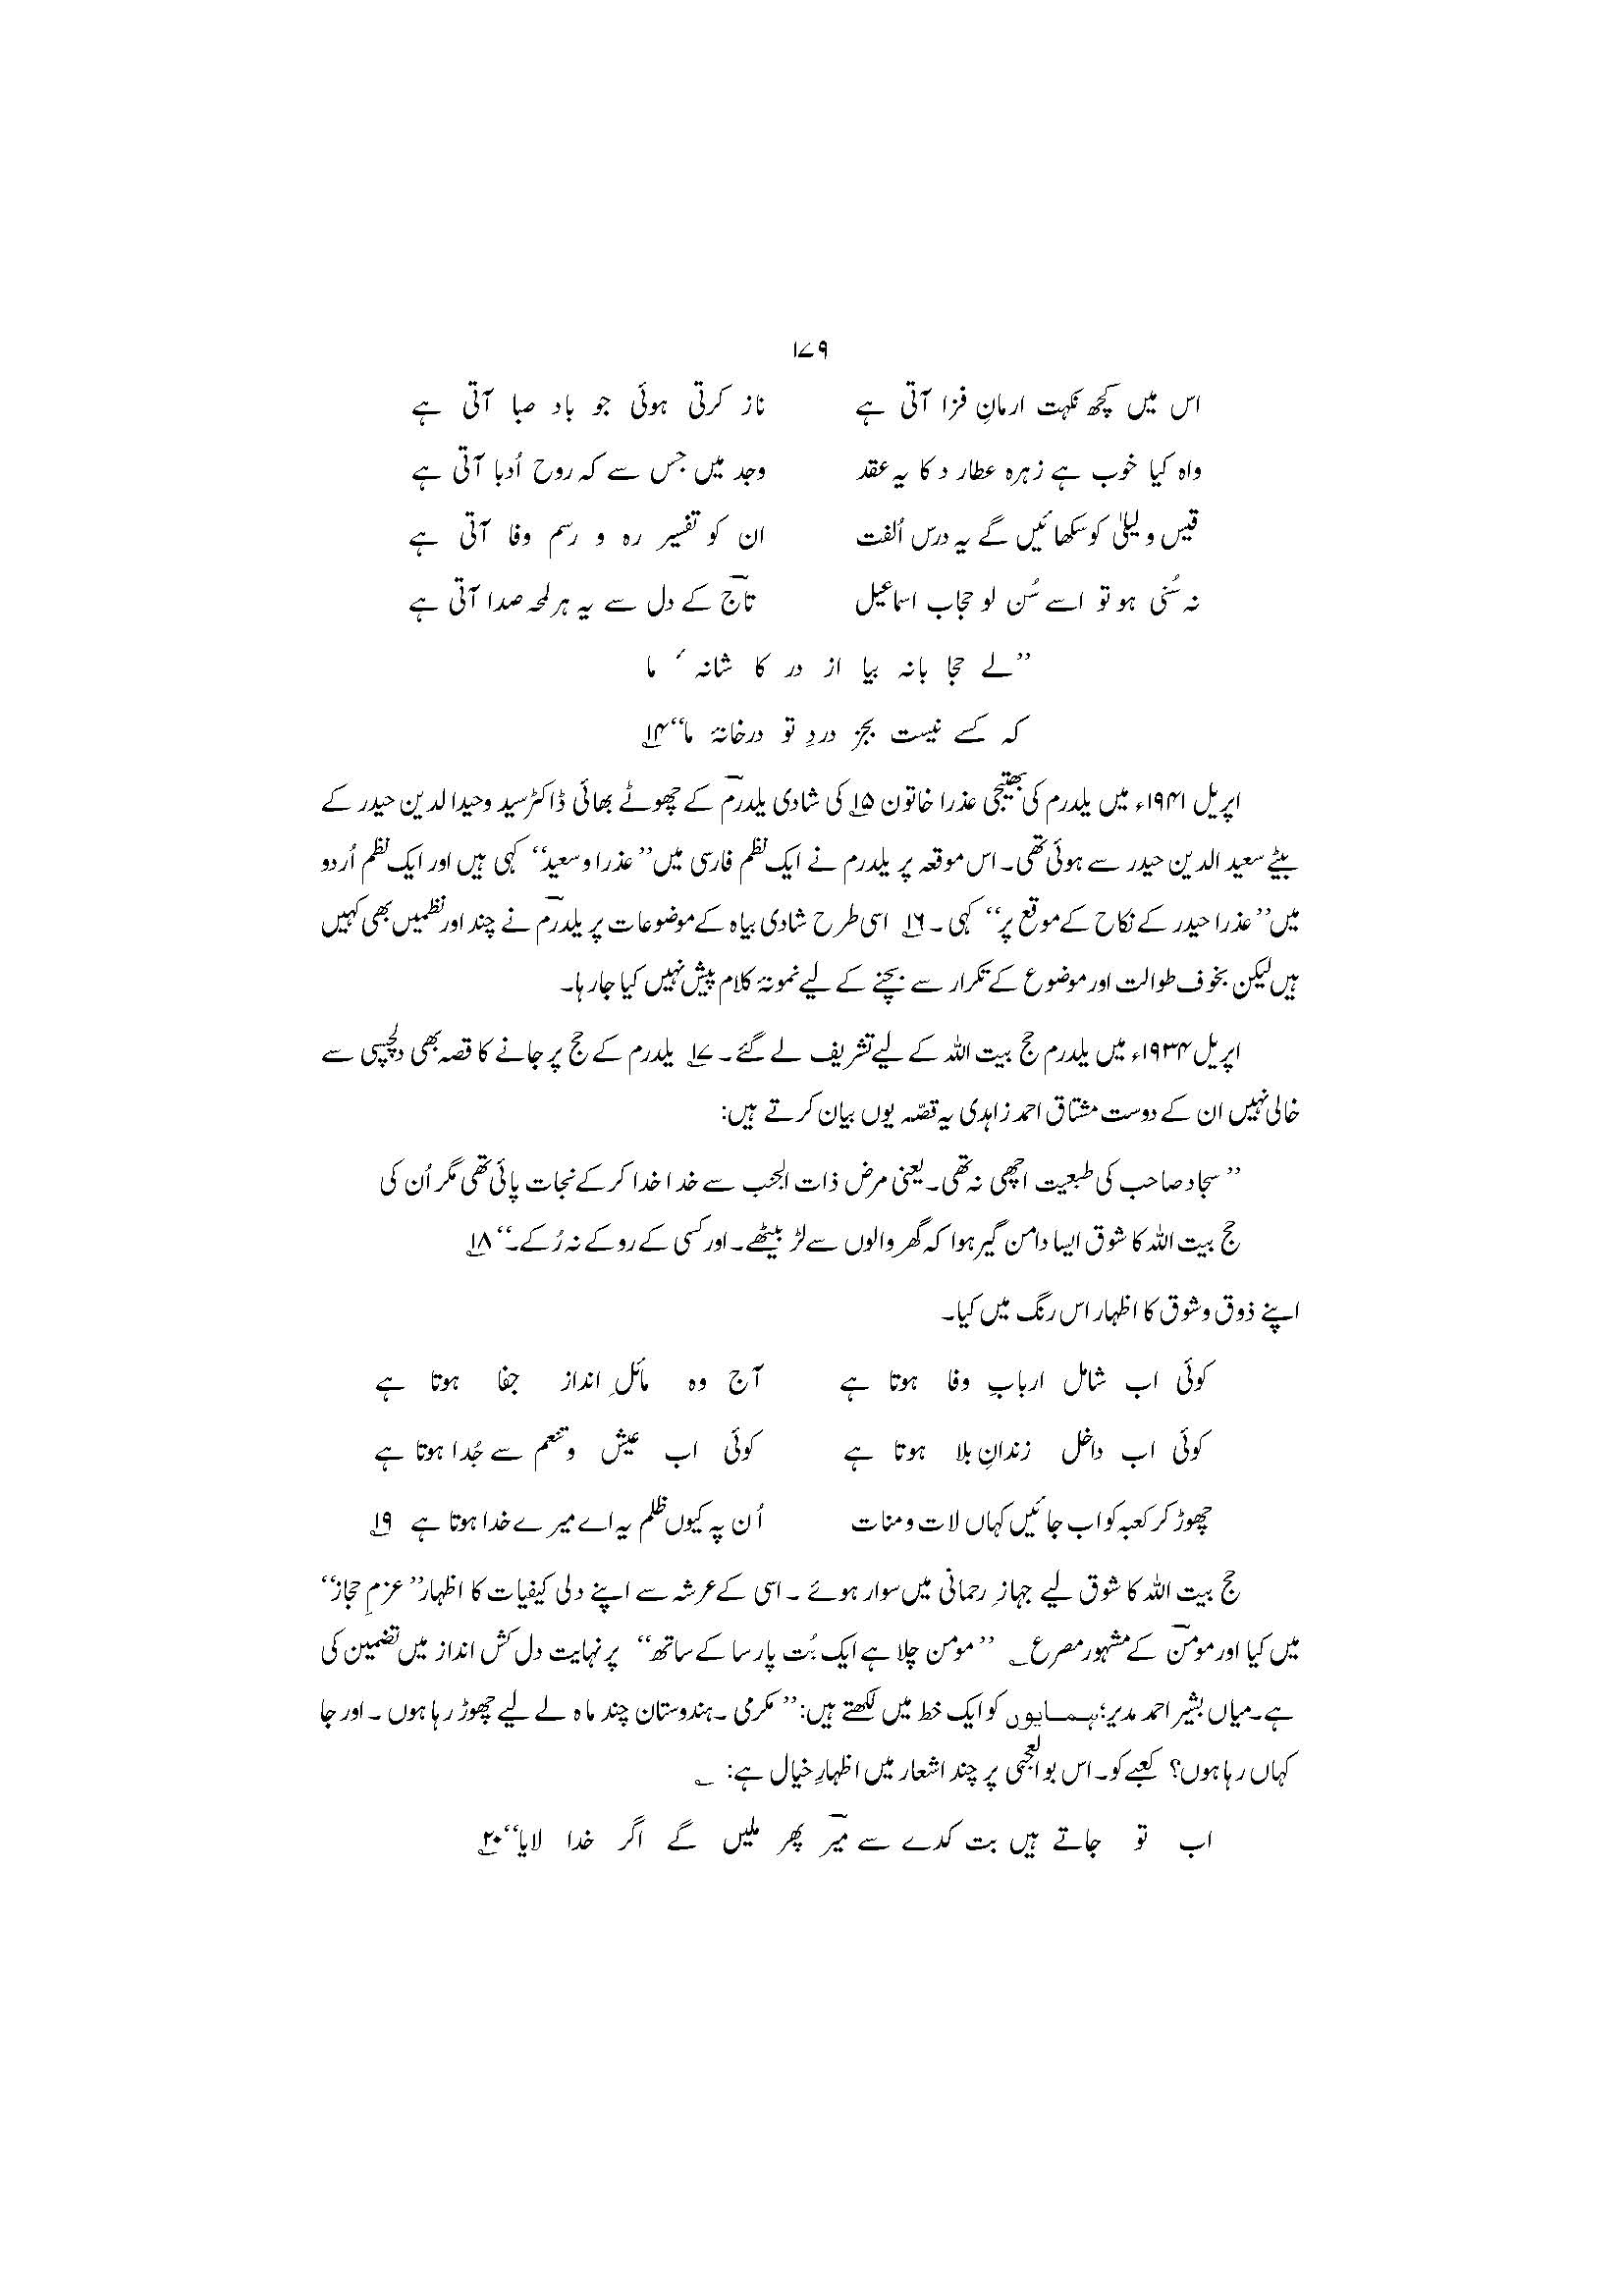 ۱۷۹
اس میں کچھ نکہت ارمانِ فزا آتی ہے ناز کرتی ہوئی جو باد صبا آتی ہے
واہ کیا خوب ہے زہرہ عطار د کا یہ عقد وجد میں جس سے کہ روح اُدبا آتی ہے
قیس و لیلیٰ کو سکھائیں گے یہ درس اُلفت ان کو تفسیر رہ و رسم وفا آتی ہے
نہ سُنی ہو تو اسے سُن لو حجاب اسماعیل تاجؔ کے دل سے یہ ہر لمحہ صدا آتی ہے
’’لے حجا بانہ بیا از در کا شانہ ٔ ما
کہ کسے نیست بجز دردِ تو درخانۂ ما‘‘۱۴؂
اپریل ۱۹۴۱ء میں یلدرم کی بھتیجی عذرا خاتون ۱۵؂ کی شادی یلدرمؔ کے چھوٹے بھائی ڈاکٹر سید وحیدالدین حیدر کے
بیٹے سعید الدین حیدر سے ہوئی تھی۔ اس موقعہ پر یلدرم نے ایک نظم فارسی میں ’’عذرا و سعید‘‘ کہی ہیں اور ایک نظم اُردو
میں ’’عذرا حیدر کے نکاح کے موقع پر‘‘ کہی۔ ۱۶؂ اسی طرح شادی بیاہ کے موضوعات پر یلدرمؔ نے چند اور نظمیں بھی کہیں
ہیں لیکن بخوف طوالت اور موضوع کے تکرار سے بچنے کے لیے نمونۂ کلام پیش نہیں کیا جا رہا۔
اپریل ۱۹۳۴ء میں یلدرم حج بیت اللہ کے لیے تشریف لے گئے۔ ۱۷؂ یلدرم کے حج پر جانے کا قصہ بھی دلچسپی سے
خالی نہیں ان کے دوست مشتاق احمد زاہدی یہ قصّہ یوں بیان کرتے ہیں:
’’سجاد صاحب کی طبعیت اچھی نہ تھی۔ یعنی مرض ذات الجحب سے خدا خدا کرکے نجات پائی تھی مگر اُن کی
حج بیت اللہ کا شوق ایسا دامن گیر ہوا کہ گھر والوں سے لڑ بیٹھے۔ اور کسی کے روکے نہ رُکے۔‘‘ ۱۸؂
اپنے ذوق و شوق کا اظہار اس رنگ میں کیا۔
کوئی اب شامل اربابِ وفا ہوتا ہے آج وہ مائلِ انداز جفا ہوتا ہے
کوئی اب داخل زندانِ بلا ہوتا ہے کوئی اب عیش و تنعم سے جُدا ہوتا ہے
چھوڑ کر کعبہ کو اب جائیں کہاں لات و منات اُن پہ کیوں ظلم یہ اے میرے خدا ہوتا ہے ۱۹؂
حج بیت اللہ کا شوق لیے جہازِ رحمانی میں سوار ہوئے۔ اسی کے عرشہ سے اپنے دلی کیفیات کا اظہار ’’عزمِ حجاز‘‘
میں کیا اور مومنؔ کے مشہور مصرع ؂ ’’مومن چلا ہے ایک بُت پارسا کے ساتھ‘‘ پر نہایت دل کش انداز میں تضمین کی
ہے۔ میاں بشیر احمد مدیر؛ ہمایوں کو ایک خط میں لکھتے ہیں: ’’مکرمی۔ ہندوستان چند ماہ لے لیے چھوڑ رہا ہوں۔ اور جا
کہاں رہا ہوں؟ کعبے کو۔ اس بوالعجبی پر چند اشعار میں اظہارِ خیال ہے: ؂
اب تو جاتے ہیں بت کدے سے میرؔ پھر ملیں گے اگر خدا لایا‘‘۲۰؂